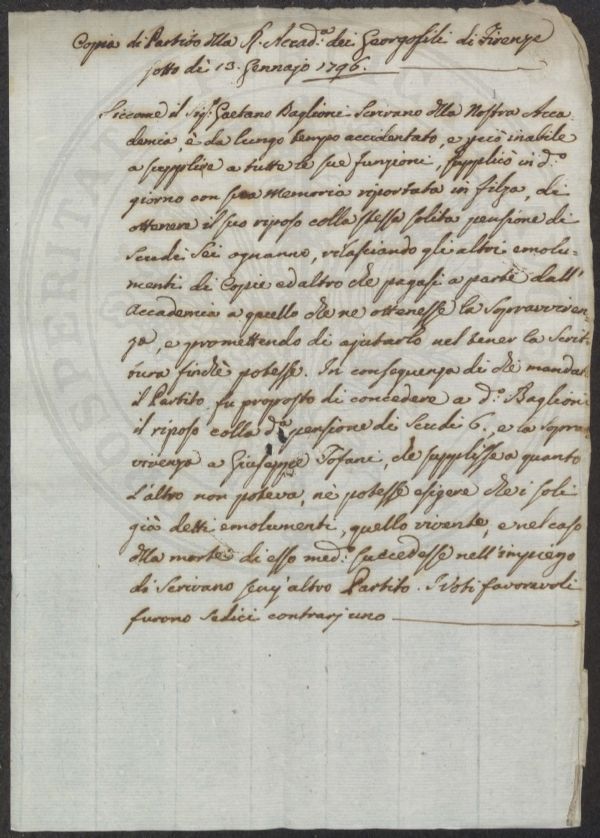 Copia di Partito dlla R. Accad.a dei Georgofili di Firenze
sotto dì 13. Gennajo 1796.
Siccome il Sig.r Gaetano Baglioni Scrivano dlla Nostra Acca-
demia, è da lungo tempo accidentato, e però inabile
a supplire a tutte le sue funzioni, supplicò in d.o
giorno con sua Memoria riportata in filza, di
ottenere il suo riposo colla stessa solita pensione di
Scudi Sei ogn'anno, rilasciando gli altri emolu-
menti di Copie ed altro che pagasi a parte dall'
Accademia a quello che ne ottenesse la Sopravviven-
za, e promettendo di ajutarlo nel tener la Scrit-
tura finchè potesse. In conseguenza di che mandat.
il Partito fu proposto di concedere a d.o Baglioni
il riposo colla d.a pensione di Scudi 6. e la sopra
vivenza a Giuseppe Tofani, che supplisse a quanto
l'altro non poteva, nè potesse esigere che i soli
già detti emolumenti, quello vivente, e nel caso
dlla morte di esso med.o succedesse nell'impiego
di Scrivano senz'altro Partito. I Voti favoravoli
furono sedici contrarj uno